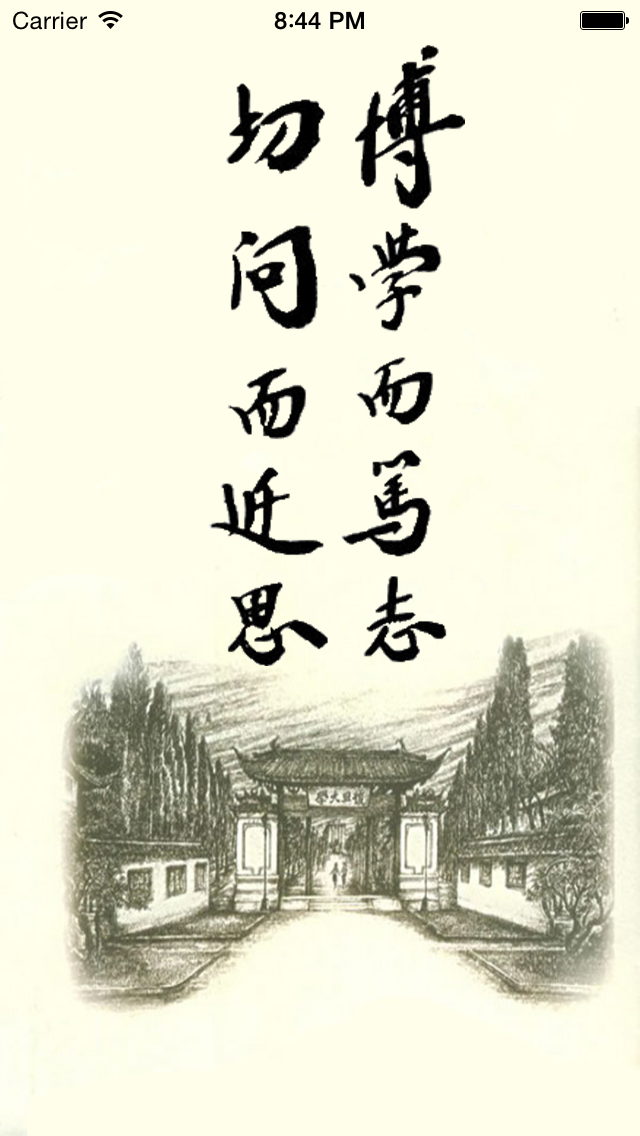 Carrier 8:44 PM
博学而笃志
切问而近思
復旦大學